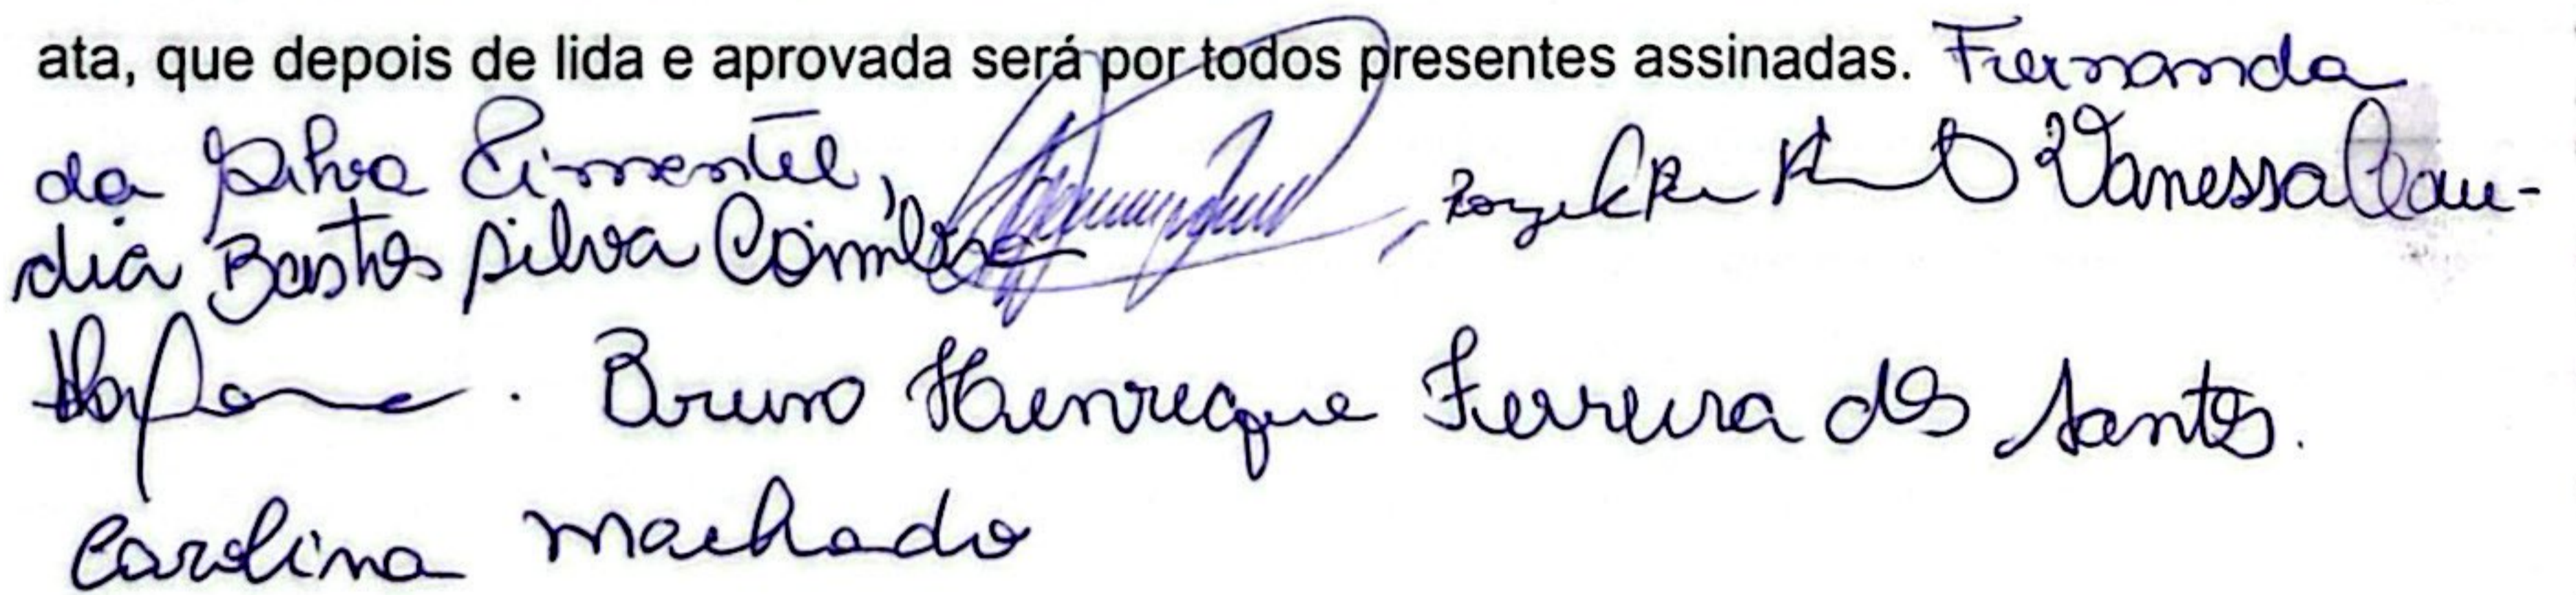 ata, que depois de lida e aprovada será por todos presentes assinadas. Fernanda
da Silva Pimentel, , Vanessa Clau-
dia Bastos Silva Coimbra
Bruno Henrique Ferreira dos Santos.
Carolina Machado